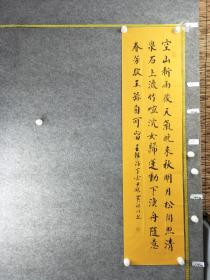 空山新雨後天氣晚來秋明月松間照清
泉石上流竹喧浣女歸蓮動下漁舟隨意
春芳歇王孫自可留 王維詩